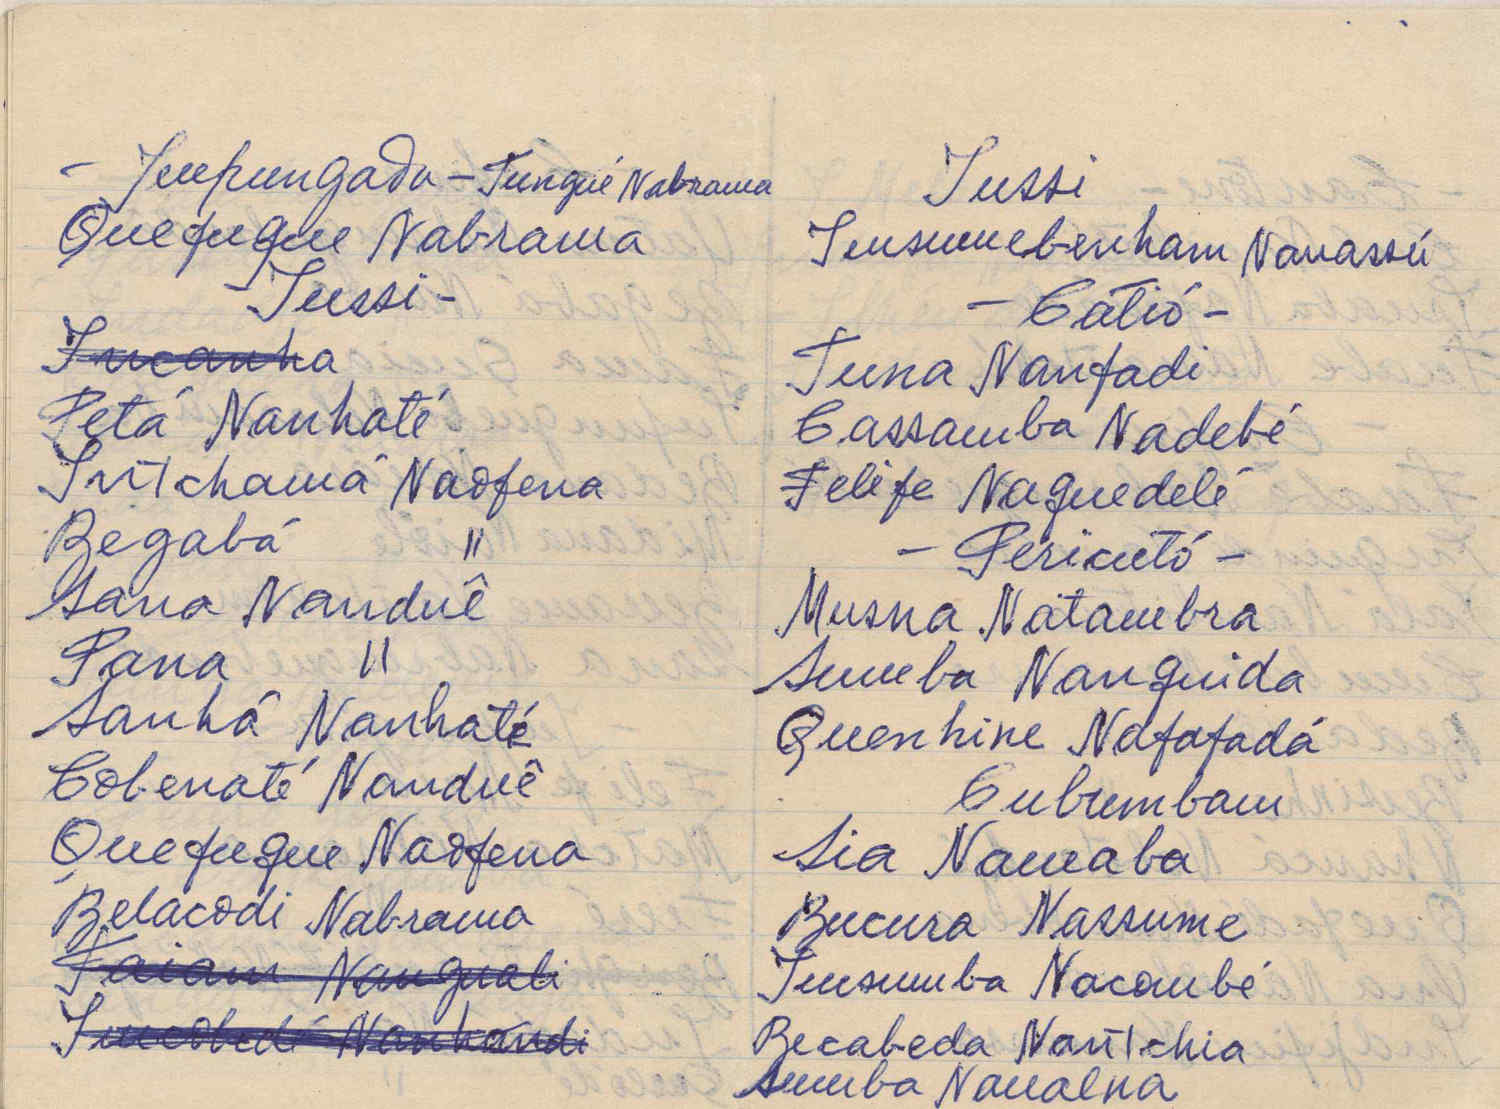 - Impungada - Tungué Nabrama
Quefugue Nabrama
- Iussi -
Incanha
Petá Nanhaté
Intchamá Naofena
Begabá "
Sana Nanduê
Pana "
Sanhá Nanhaté
Cobenaté Nanduê
Quefugue Naofena
Belacodi Nabrama
Faiam Nanguali
Incobedé Nanhandi
Iussi
Insumebenham Nanassú
- Cátió -
Tuna Nanfadi
Cassamba Nadebé
Felife Naguedelé
- Pericutó -
Musna Natambra
Sumba Nanguida
Quenhine Nafafadá
Cubumbam
Sia Namaba
Bucura Nassume
Insumba Nacombé
Becabeda Nantchia
Sumba Nanalna